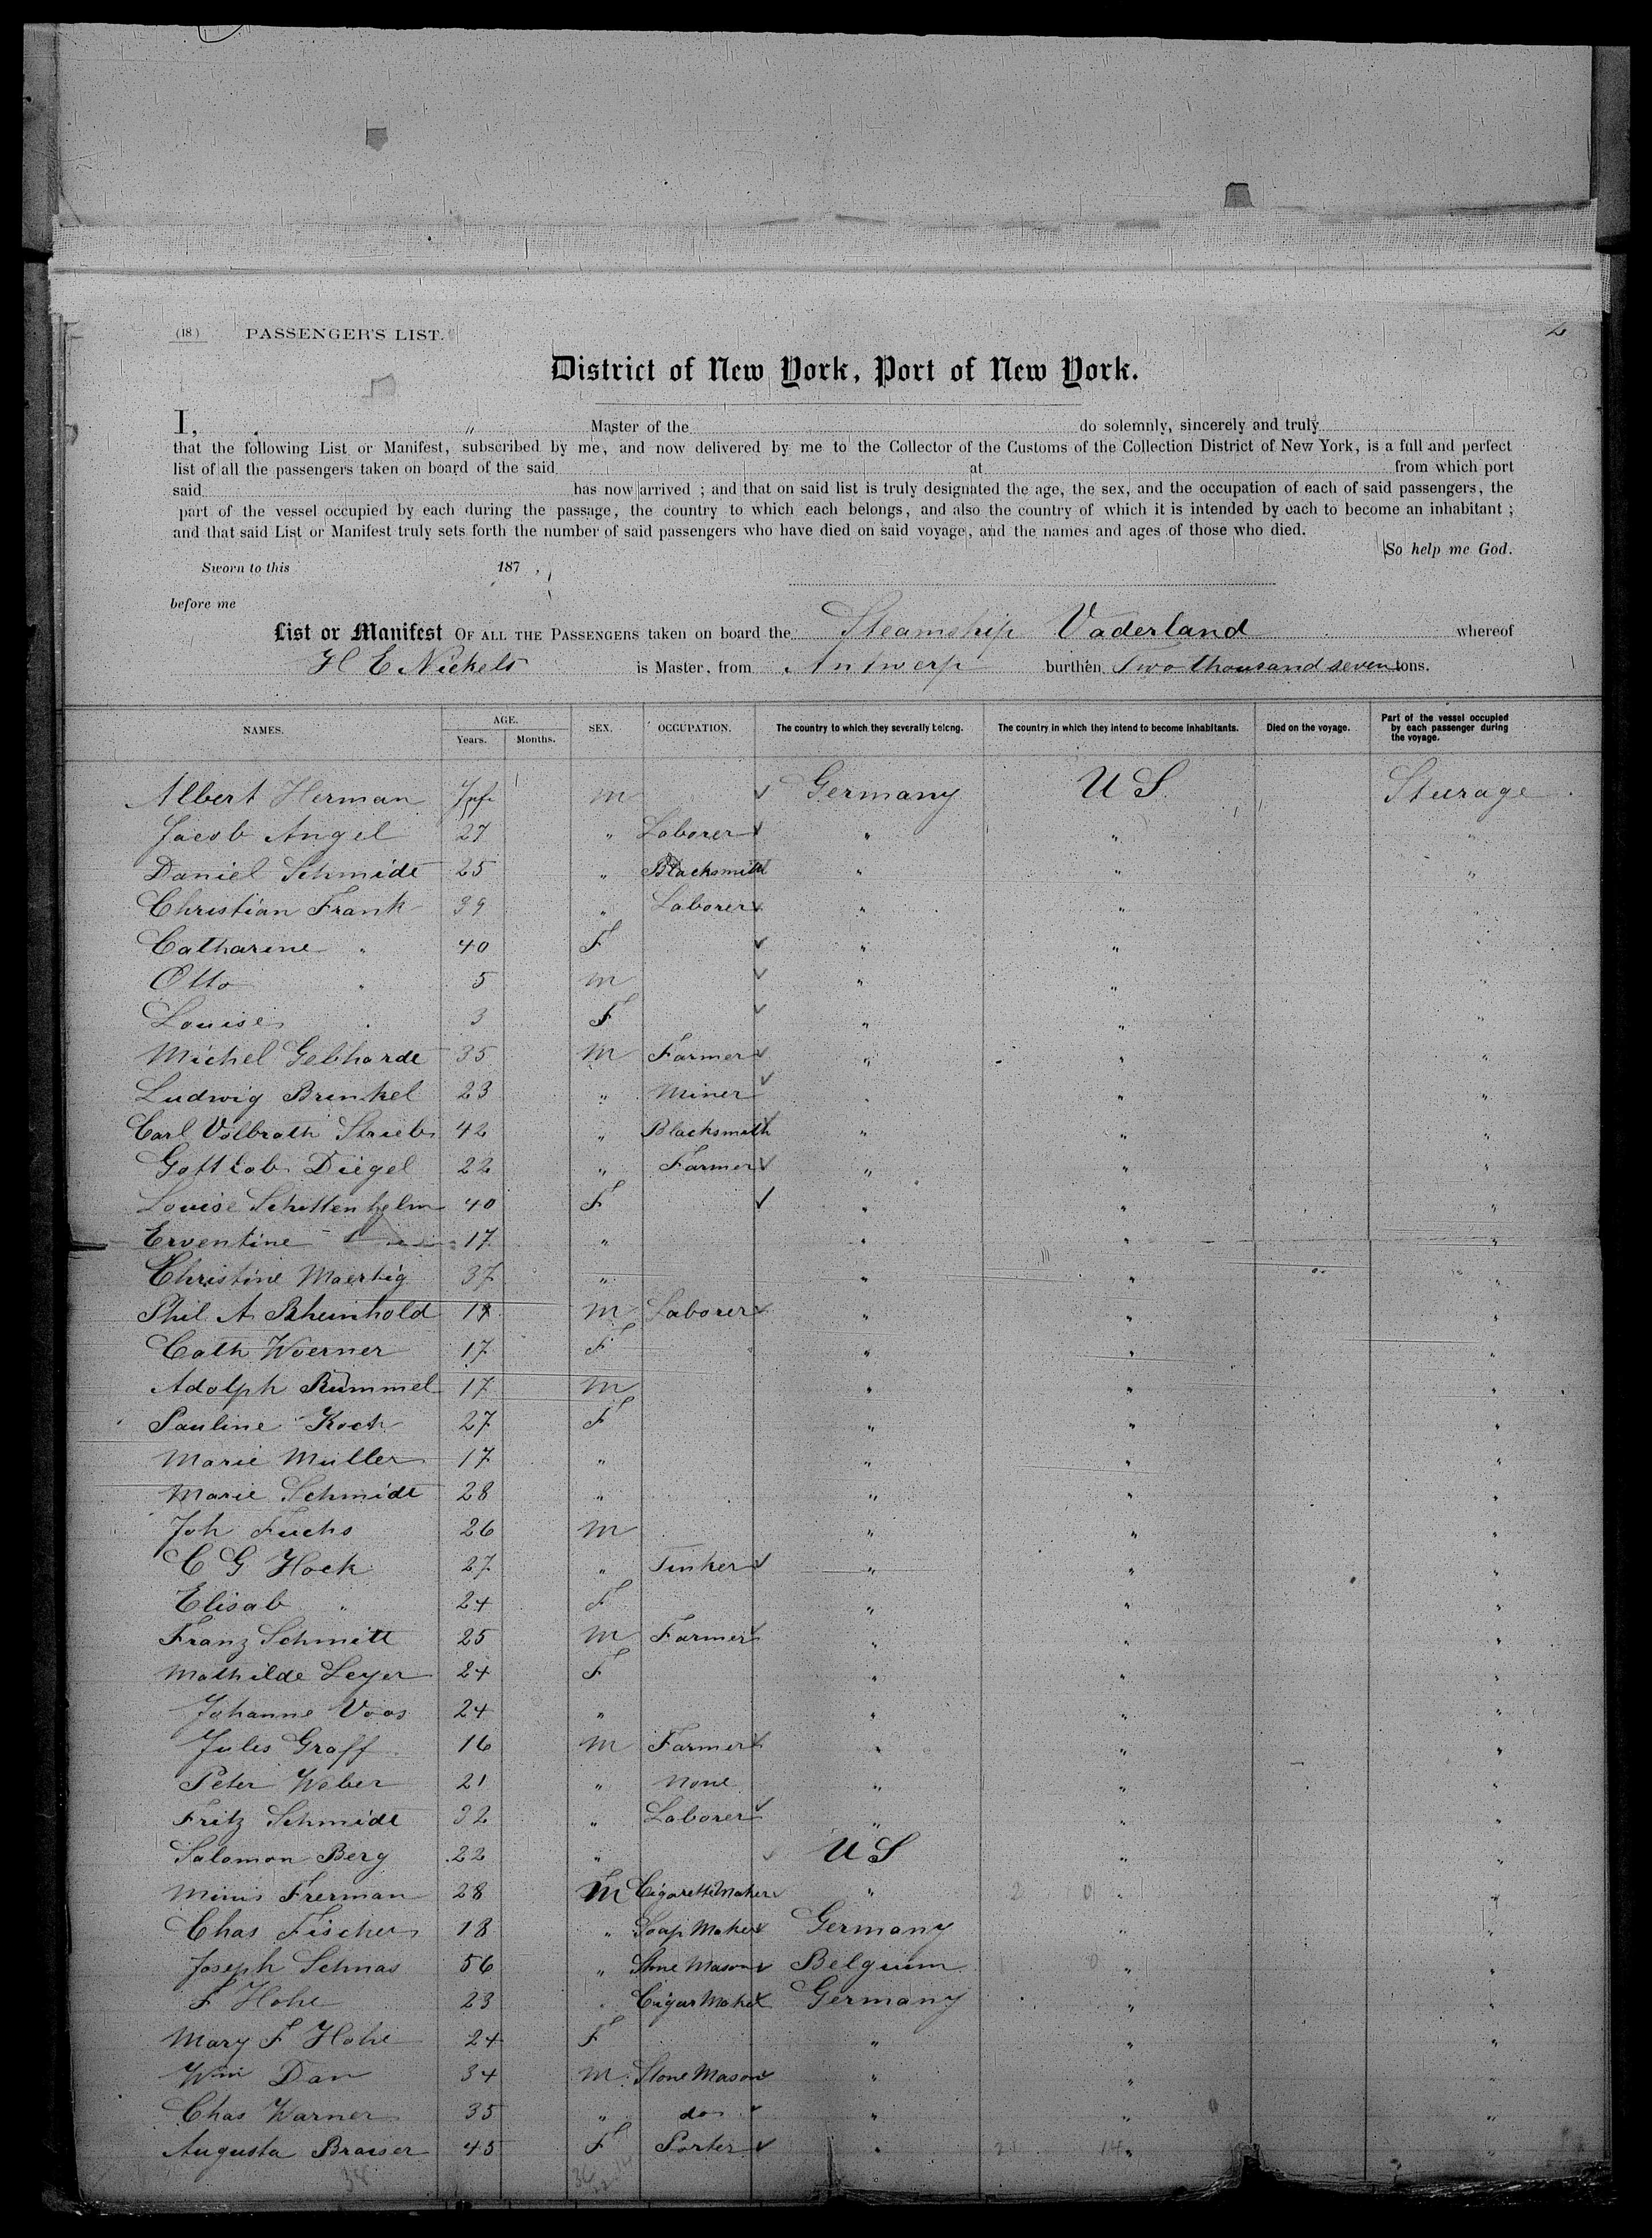 (18.) PASSENGER'S LIST. 2
District of New York, Port of New York.
I, " Master of the do solemnly, sincerely and truly
that the following List or Manifest, subscribed by me, and now delivered by me to the Collector of the Customs of the Collection District of New York, is a full and perfect
list of all the passengers taken on board of the said at from which port
said has now arrived ; and that on said list is truly designated the age, the sex, and the occupation of each of said passengers, the
part of the vessel occupied by each during the passage, the country to which each belongs, and also the country of which it is intended by each to become an inhabitant ;
and that said List or Manifest truly sets forth the number of said passengers who have died on said voyage, and the names and ages of those who died.
So help me God.
Sworn to this 187 ,
before me
List or Manifest OF ALL THE PASSENGERS taken on board the Steamship Vaderland whereof
H E Nickels is Master, from Antwerp burthen Two thousand seven tons.
NAMES. AGE. Years. Months. SEX. OCCUPATION. The country to which they severally belong. The country in which they intend to become inhabitants. Died on the voyage. Part of the vessel occupied by each passenger during the voyage.
Albert Herman Inf m ✓ Germany U S Sturage
Jacob Angel 27 " Laborer ✓ " " "
Daniel Schmidt 25 " Blacksmith " " "
Christian Frank 39 " Laborer ✓ " " "
Catharine " 40 F ✓ " " "
Otto " 5 m ✓ " " "
Louise " 3 F ✓ " " "
Michel Gebhardt 35 m Farmer ✓ " " "
Ludwig Brinkel 23 " Miner ✓ " " "
Carl Volbrath Strieb 42 " Blacksmith " " "
Gottlob Diegel 22 " Farmer ✓ " " "
Louise Schittenhelm 40 F ✓ " " "
Erventine 17 " " " "
Christine Maertig 37 " " " "
Phil A Rheinhold m Laborer ✓ " " "
Cath Woerner 17 F " " "
Adolph Rummel 17 m " " "
Pauline Koch 27 F " " "
Marie Muller 17 " " " "
Marie Schmidt 28 " " " "
Joh Fuchs 26 m " " "
C G Hock 27 " Tinker ✓ " " "
Elisab " 24 F " " "
Franz Schmitt 25 m Farmer ✓ " " "
Mathilde Leyer 24 F " " "
Johanne Voos 24 " " " "
Jules Graff 16 m Farmer ✓ " " "
Peter Weber 21 " none " " "
Fritz Schmidt 32 " Laborer ✓ " " "
Salomon Berg 22 " ✓ U S " "
Minis Frerman 28 m Cigarette Maker ✓ " 2 0 " "
Chas Fischer 18 " Soap Maker ✓ Germany " "
Joseph Schnas 56 " Stone Mason ✓ Belgium 1 0 " "
F Hohe 23 " Cigar Maker ✓ Germany " "
Mary F Hohe 24 F " " "
Wm Dan 34 m Stone Mason ✓ " " "
Chas Warner 35 " do ✓ " " "
Augusta Braiser 45 F Porter ✓ " 21 14 " "